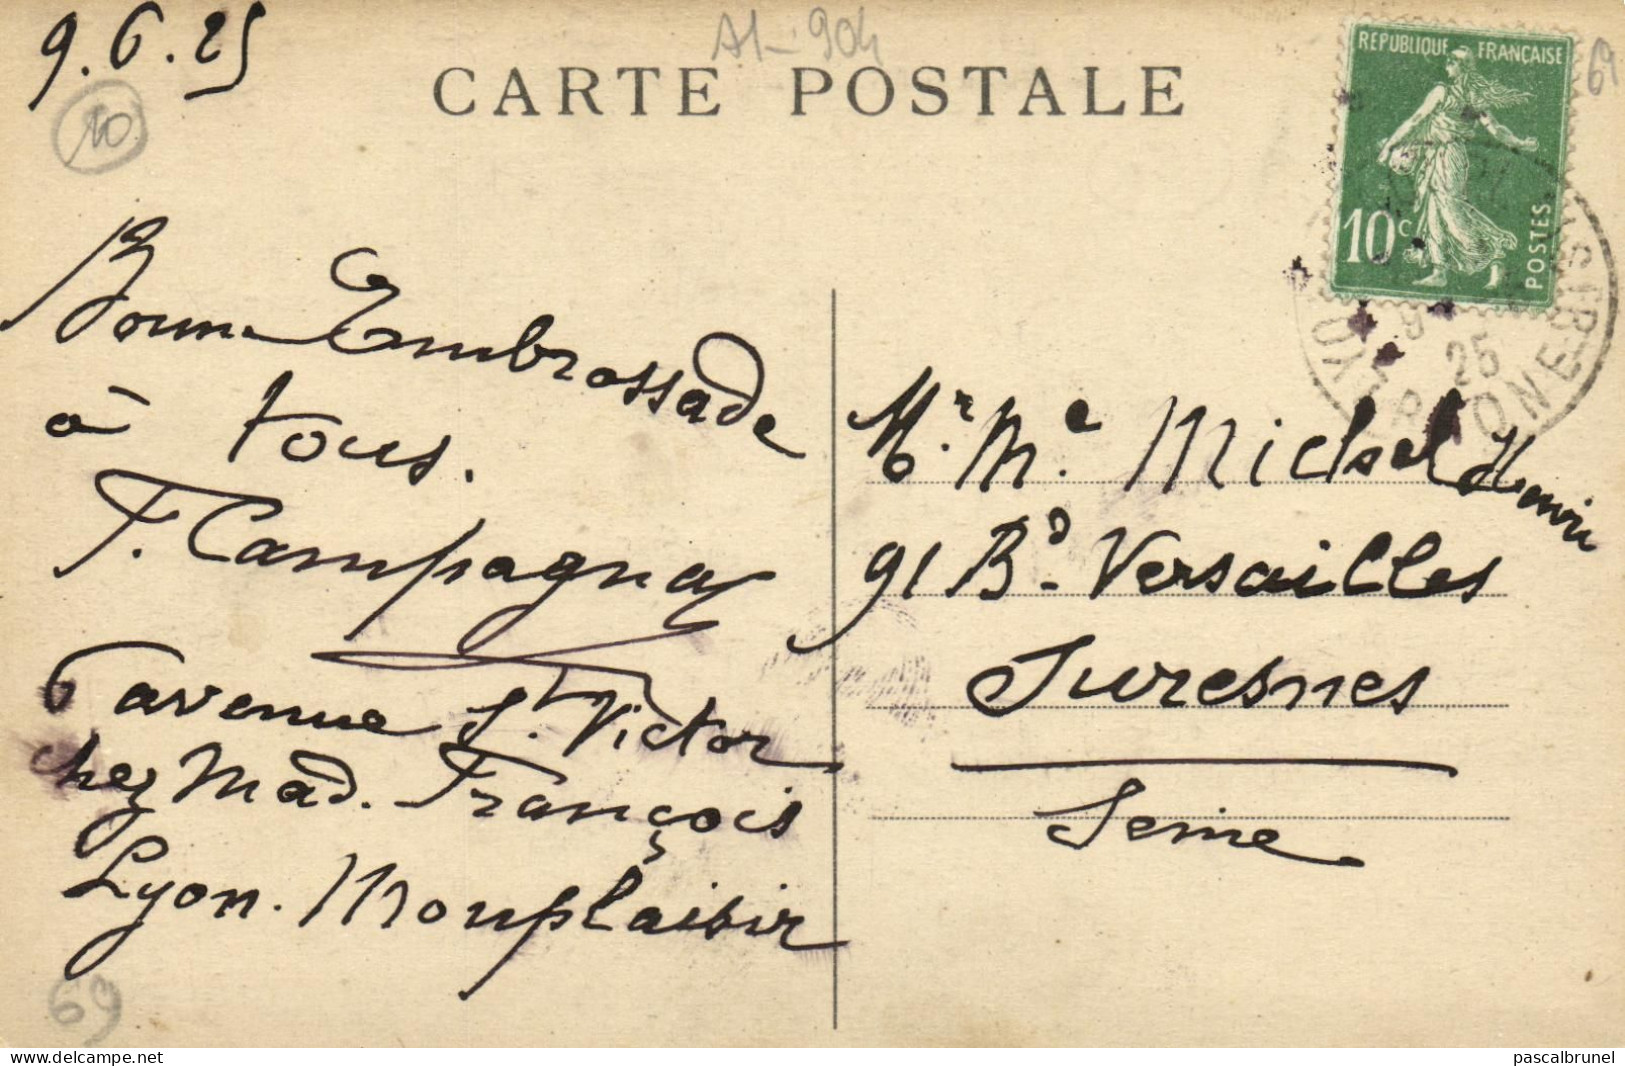 9.6.25
A1-904
CARTE POSTALE
REPUBLIQUE FRANÇAISE
10c
POSTES
69
10
25
RHONE
Bonne Embrassade
à tous.
F. Campagna
6 avenue S. Victor
chez Mad. François
Lyon. Monplaisir
69
Mr. Me. Michel Henri
91 Bd. Versailles
Suresnes
Seine
www.delcampe.net
pascalbrunel